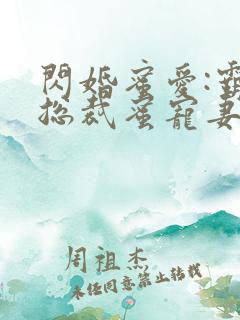 閃婚蜜愛:
總裁蜜寵妻
周祖杰
未經同意禁止轉載